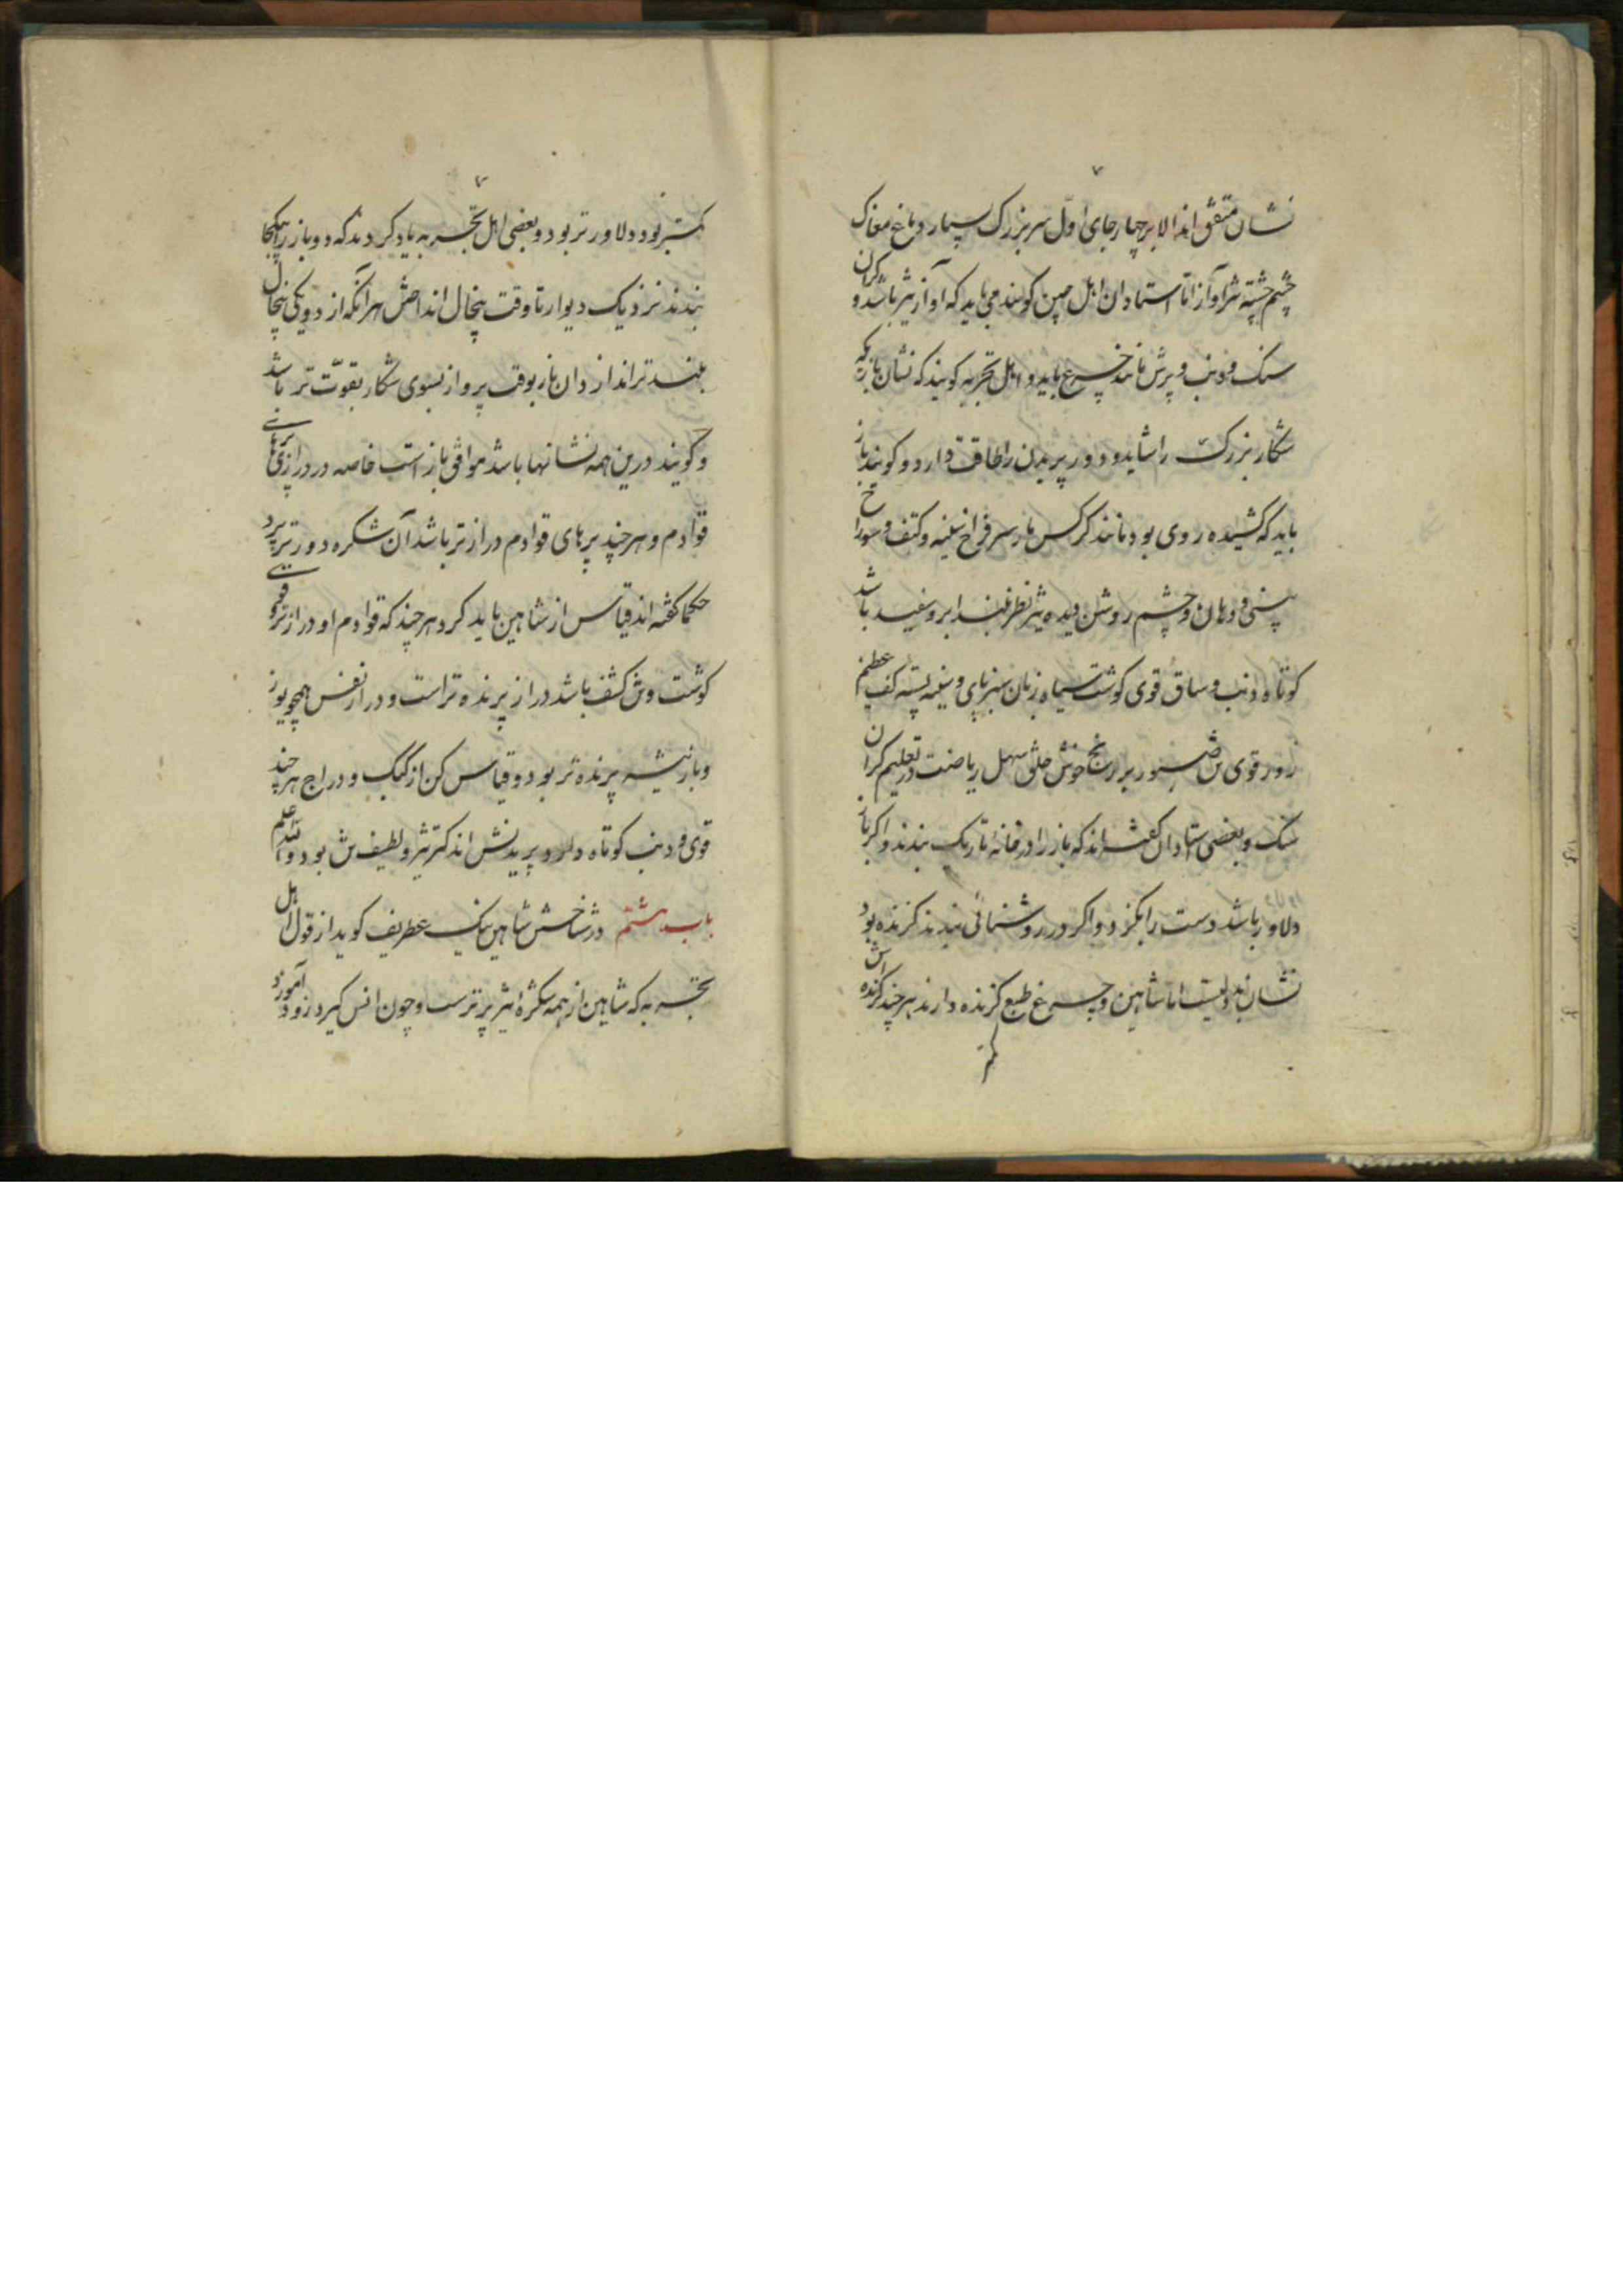 ۷
نشان متفق اند الا بر چهار جای اول سر بزرک بسیار دماغ مغاک
چشم آواز اما استادان اهل کویند می باید که آواز تیز باشد و کران
سنک و ذنب و پرش مانند چرغ باید و اهل تجربه کویند که نشان باز که
شکار بزرک را شاید و دور پریدن را طاقت دارد و کویند باز
باید که کشیده روی بود مانند کرکس باز سر فراخ سینه و کتف و سوراخ
بینی و دهان و چشم روشن دیده تیز نظر بلند ابرو سفید باشد
کوتاه ذنب و ساق قوی کوشت سیاه زبان سبز پای و کف عظیم
زور قوی تن صبور بر رنج خوش خلق سهل ریاضت در تعلیم کران
سنک و بعضی استادان کفته اند که باز را در خانه تاریک بندند و اکر باز
دلاور باشد دست را بکزد و اکر در روشنائی بندند کزنده بود
نشان بددلیست اما شاهین و چرغ طبع کزنده دارند هر چند کزنده اش
کمتر
۷
کمتر بود دلاورتر بود و بعضی اهل تجربه یاد کردند که دو باز را یکجا
بندند نزدیک دیوار تا وقت پیخال انداختن هر آنکه از دو یکی پیخال
بلندتر اندازد آن باز بوقت پرواز بسوی شکار بقوت تر باشد
و کویند درین همه نشانها باشد موافق باز است خاصه در درازی پرهای
قوادم و هر چند پرهای قوادم درازتر باشد آن شکره دورتر پرد
حکما کفته اند قیاس از شاهین باید کرد هر چند که قوادم او درازتر و قوی
کوشت و تن کشف باشد دراز پرنده تر است و دراز نفس همچو یوز
و باز بیشه پرنده تر بود و قیاس کن از کبک و دراج هر چند
قوی و ذنب کوتاه دارد پریدنش اندک تیز و لطیف تن بود والله اعلم
باب هشتم در شناختن شاهین نیک عطریف کوید از قول اهل
تجربه که شاهین از همه شکره تیز پرتر ست و چون انس کیرد زود آموزد